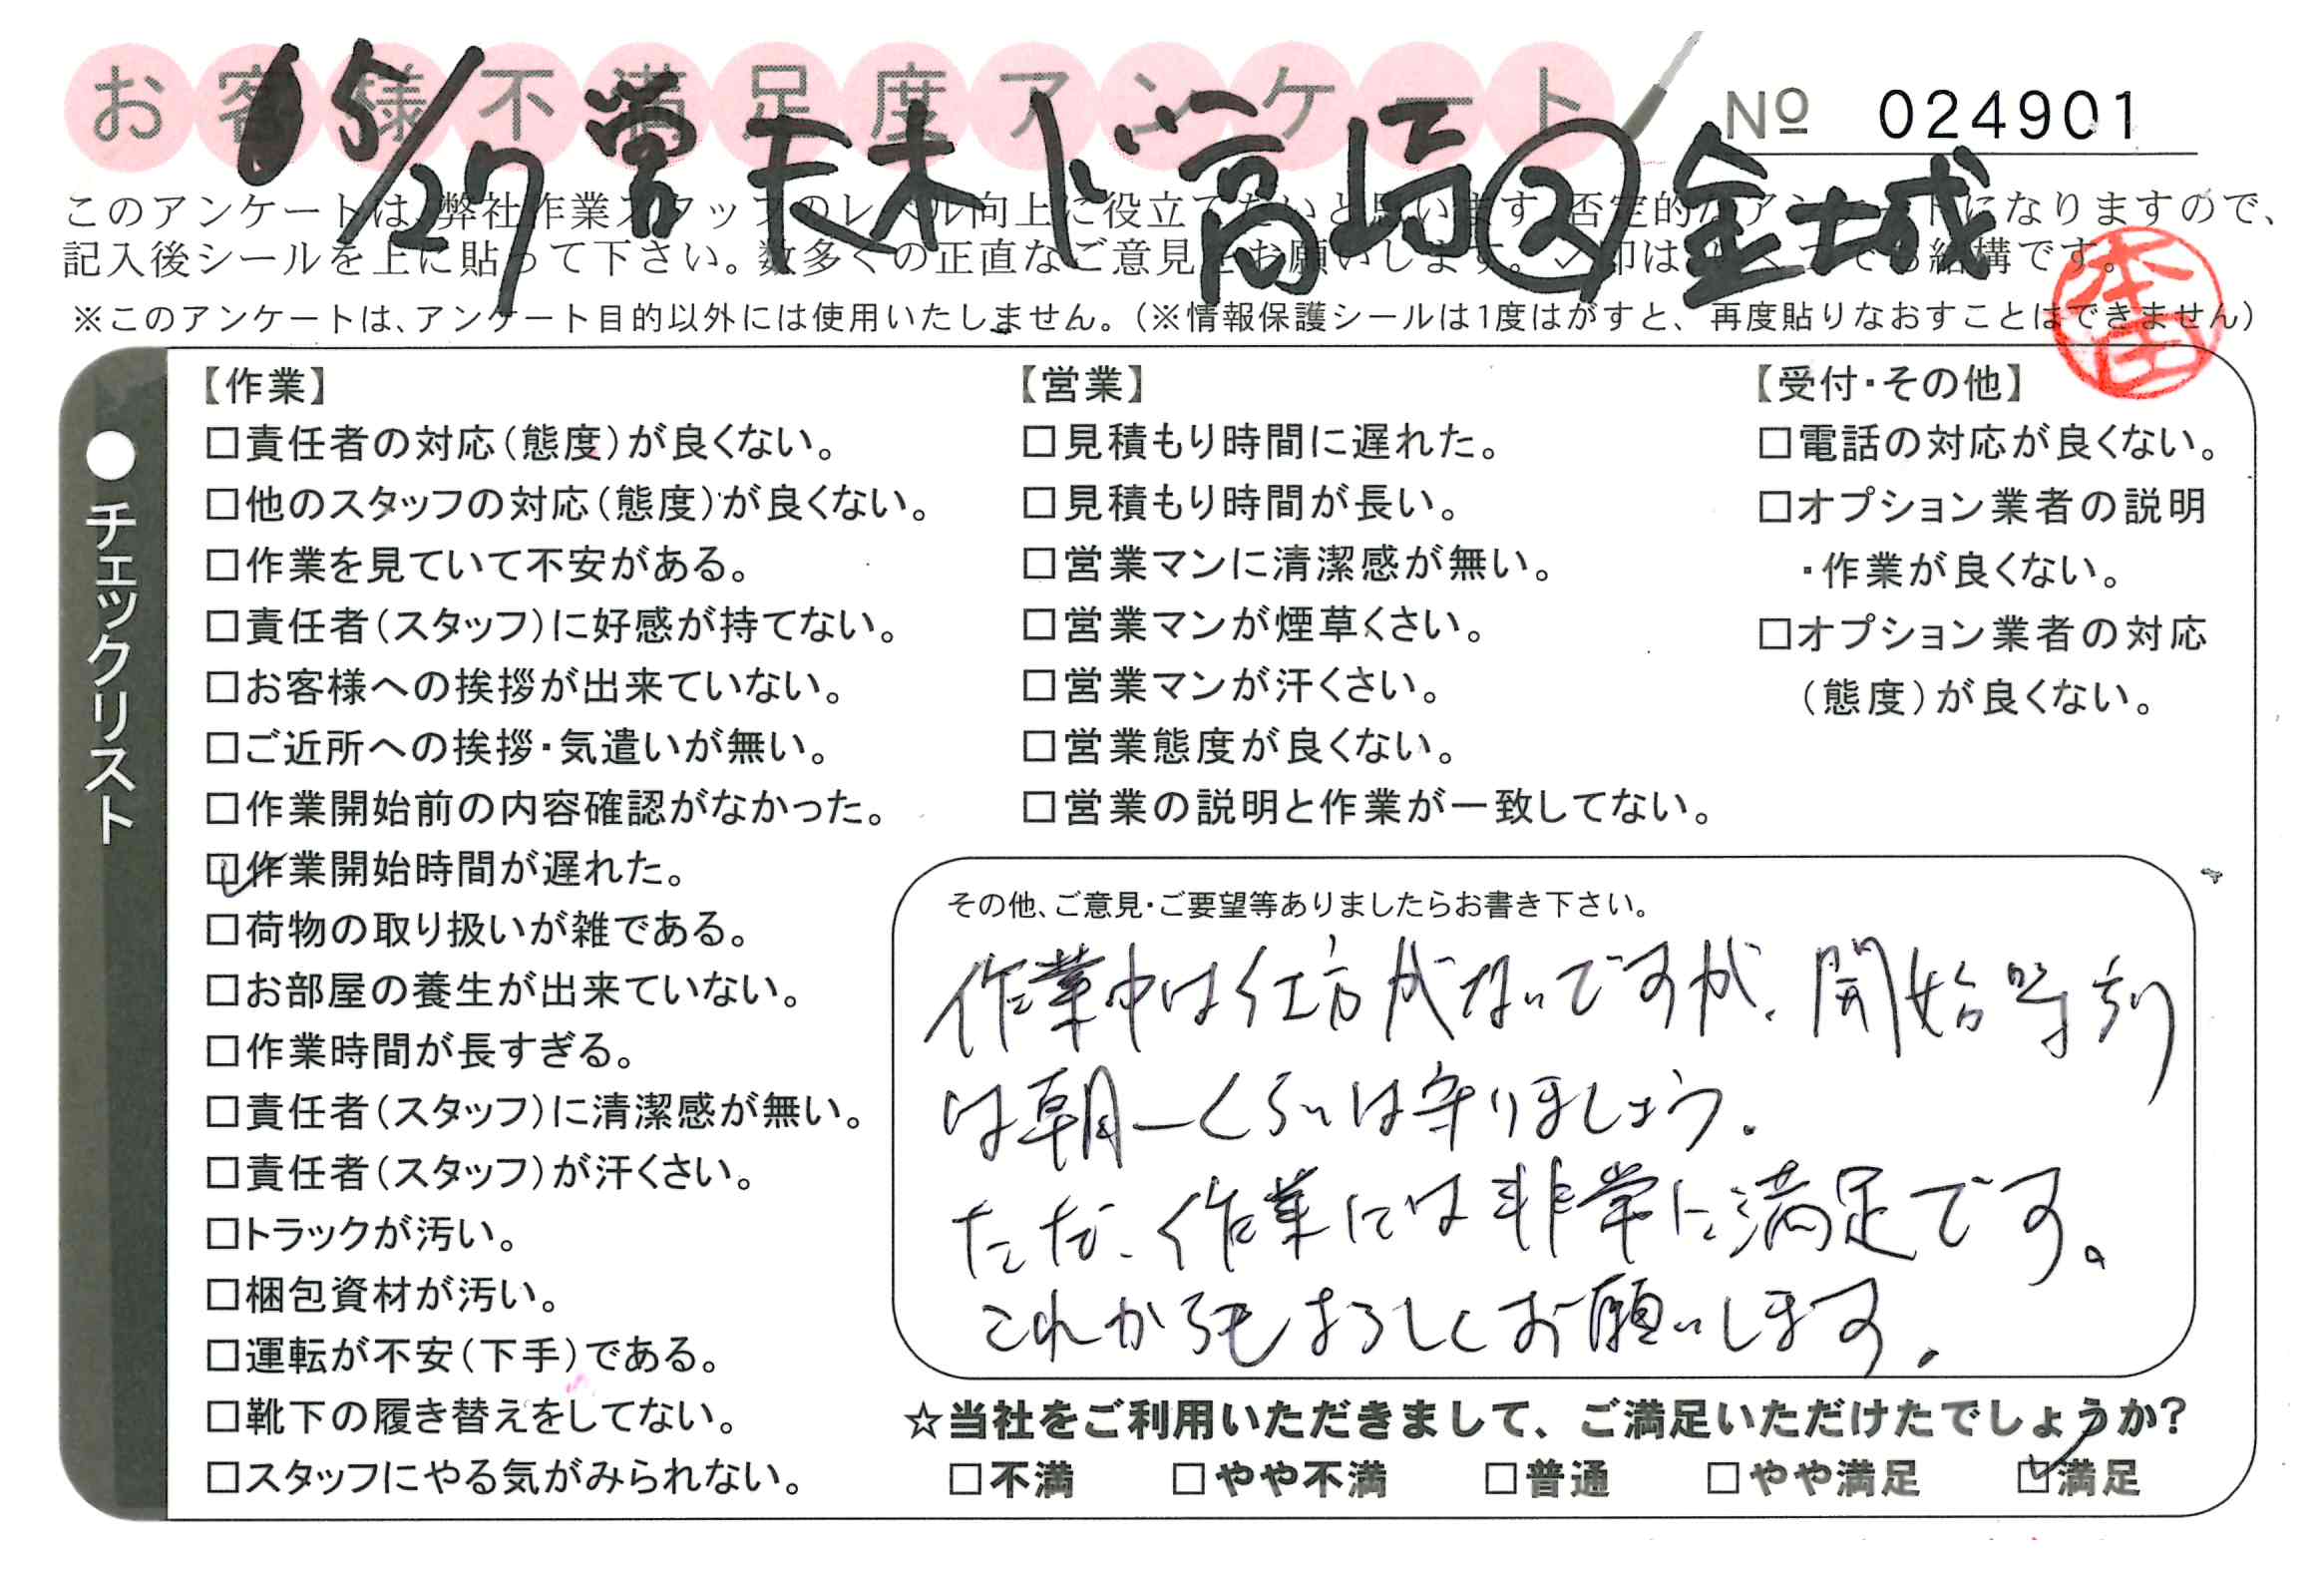 お客様不満足度アンケート
№ 024901
5/27 営 天木 ド 高崎 ② 金城
このアンケートは、弊社作業スタッフのレベル向上に役立てたいと思います。否定的なアンケートになりますので、
記入後シールを上に貼って下さい。数多くの正直なご意見をお願いします。✓印はいくつでも結構です。
※このアンケートは、アンケート目的以外には使用いたしません。(※情報保護シールは1度はがすと、再度貼りなおすことはできません)
本田
●チェックリスト
【作業】
□責任者の対応(態度)が良くない。
□他のスタッフの対応(態度)が良くない。
□作業を見ていて不安がある。
□責任者(スタッフ)に好感が持てない。
□お客様への挨拶が出来ていない。
□ご近所への挨拶・気遣いが無い。
□作業開始前の内容確認がなかった。
☑作業開始時間が遅れた。
□荷物の取り扱いが雑である。
□お部屋の養生が出来ていない。
□作業時間が長すぎる。
□責任者(スタッフ)に清潔感が無い。
□責任者(スタッフ)が汗くさい。
□トラックが汚い。
□梱包資材が汚い。
□運転が不安(下手)である。
□靴下の履き替えをしてない。
□スタッフにやる気がみられない。
【営業】
□見積もり時間に遅れた。
□見積もり時間が長い。
□営業マンに清潔感が無い。
□営業マンが煙草くさい。
□営業マンが汗くさい。
□営業態度が良くない。
□営業の説明と作業が一致してない。
【受付・その他】
□電話の対応が良くない。
□オプション業者の説明
・作業が良くない。
□オプション業者の対応
(態度)が良くない。
その他、ご意見・ご要望等ありましたらお書き下さい。
作業中は仕方がないですが、開始時刻
は朝一くらいは守りましょう。
ただ、作業には非常に満足です。
これからもよろしくお願いします。
☆当社をご利用いただきまして、ご満足いただけたでしょうか?
□不満 □やや不満 □普通 □やや満足 ☑満足